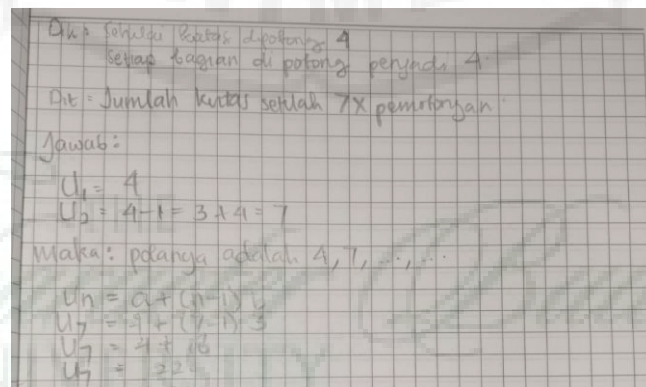 Dik: Sehelai kertas dipotong 4
setiap bagian di potong menjadi 4.
Dit = Jumlah kertas setelah 7x pemotongan.
Jawab:
U1 = 4
U2 = 4-1 = 3+4 = 7
Maka: polanya adalah 4, 7, ..., ...
Un = a + (n-1) b
U7 = 4 + (7-1) 3
U7 = 4 + 18
U7 = 22